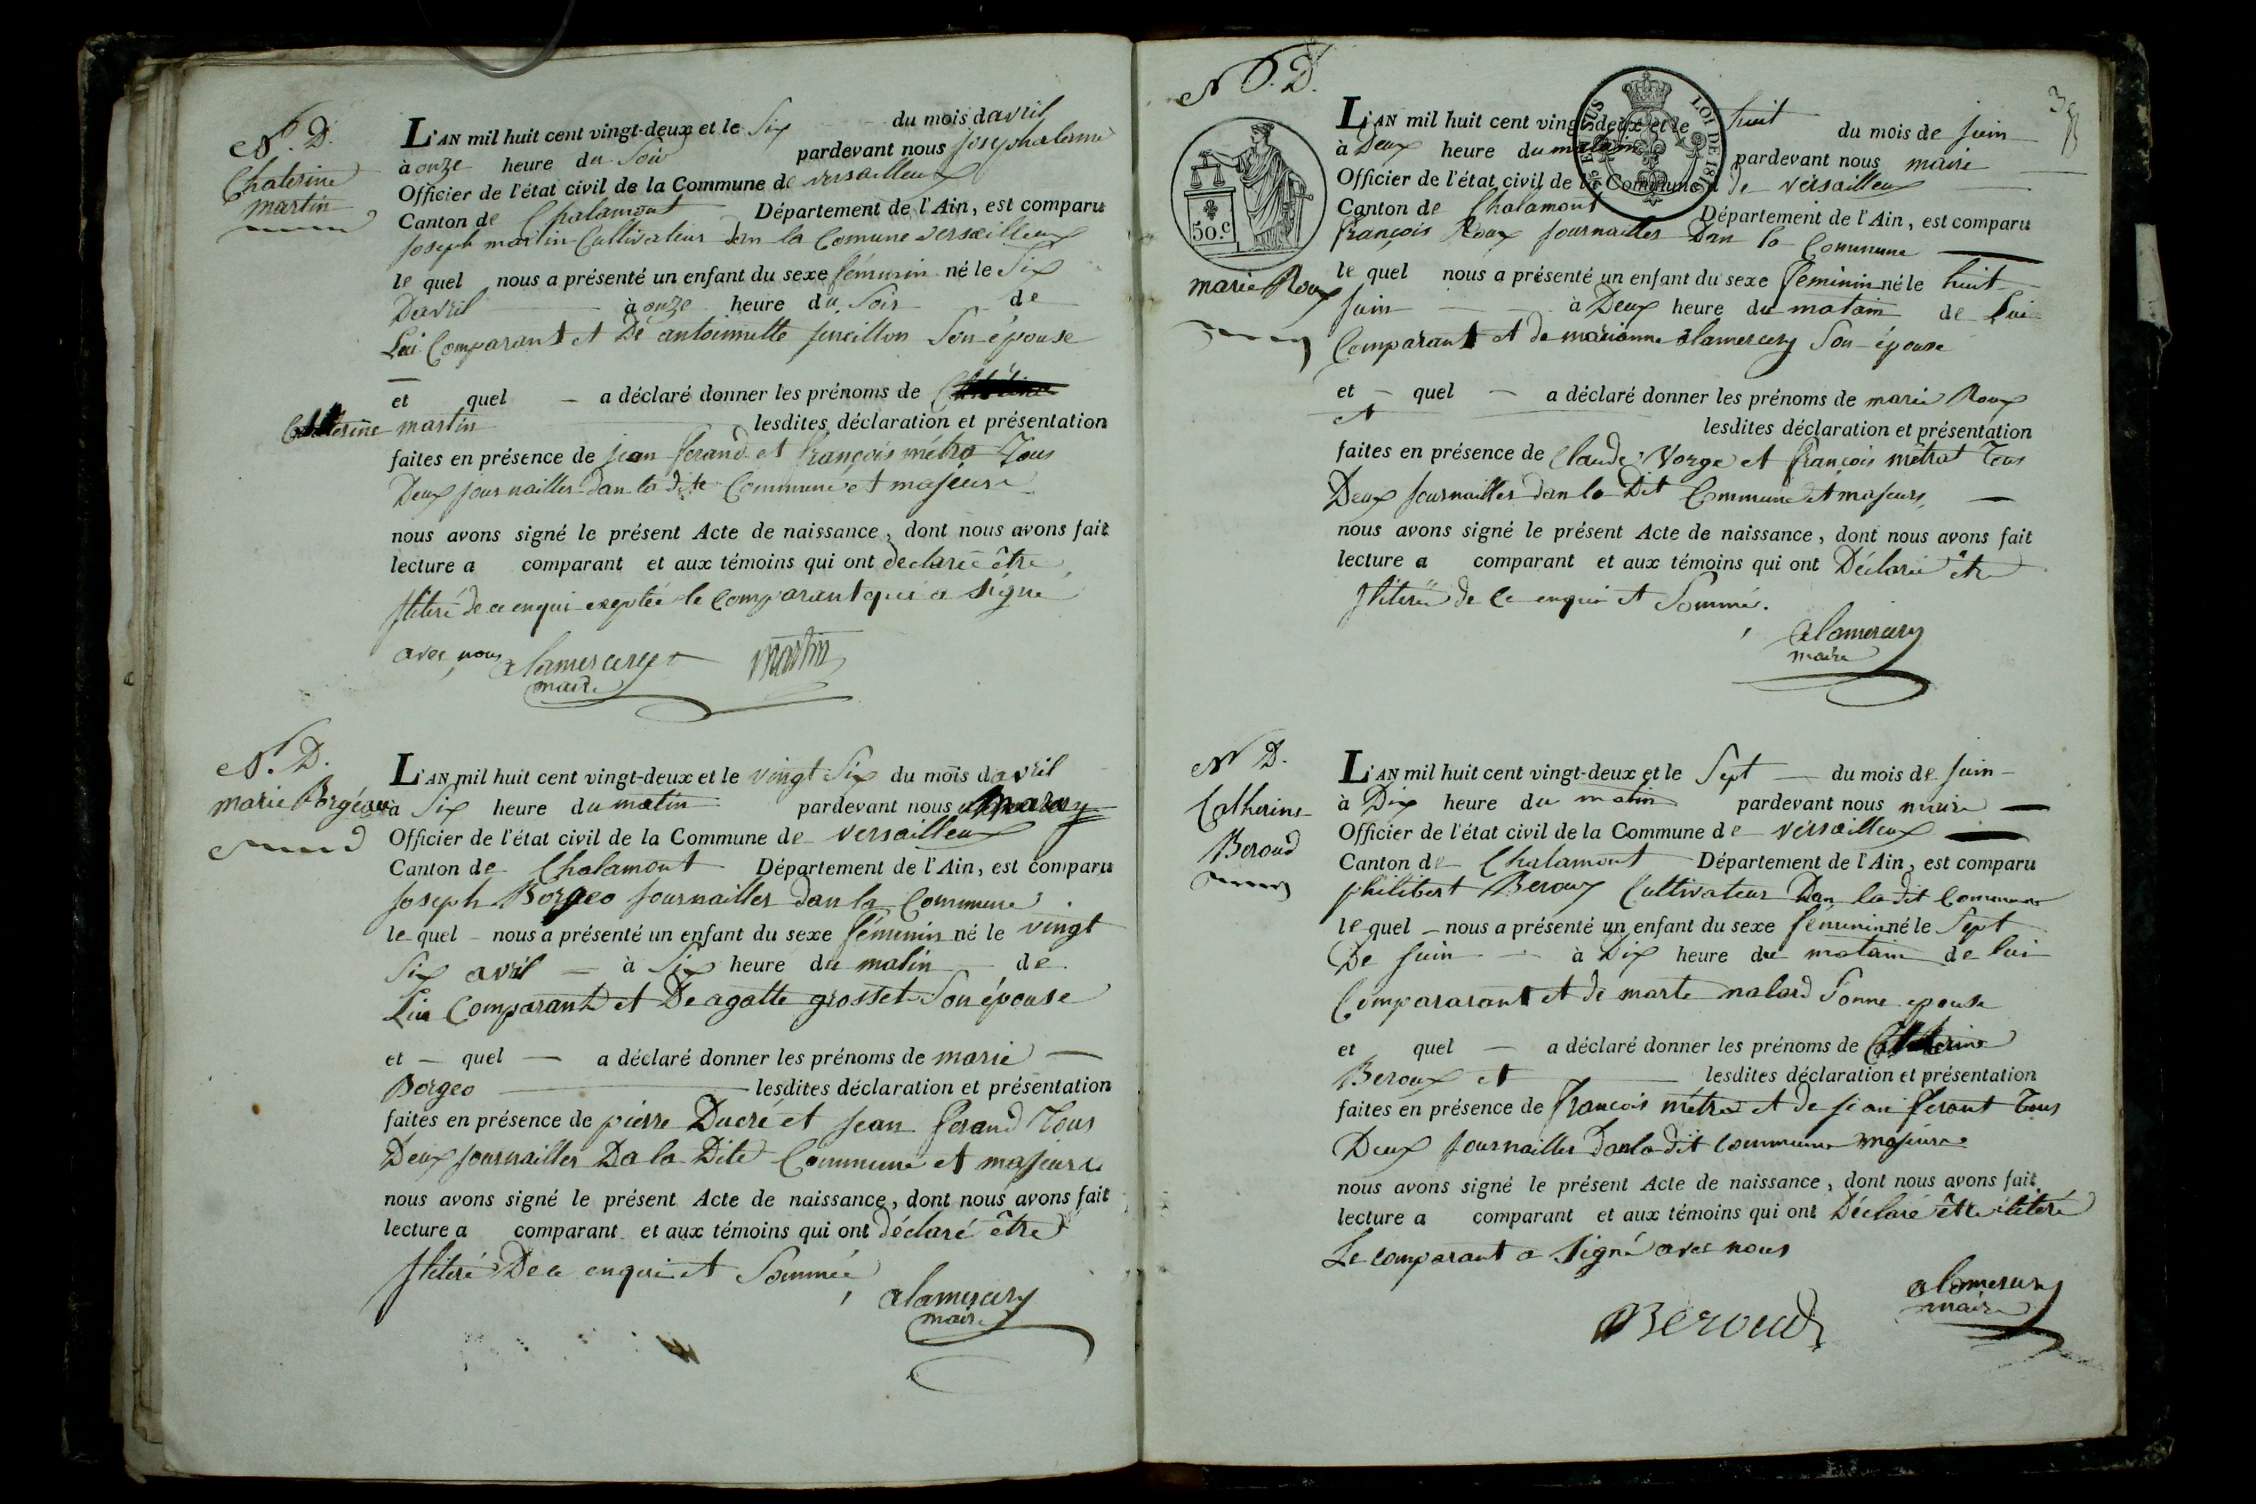 N.D.
Chaterine
martin
L'AN mil huit cent vingt-deux et le Six du mois davril
à onze heure du Soir pardevant nous
Officier de l'état civil de la Commune de versailleux
Canton de Chalamont Département de l'Ain, est comparu
Joseph martin Cultivateur dan la Comune versailleux
le quel nous a présenté un enfant du sexe féminin né le Six
Davril à onze heure du Soir de
Lui Comparant et De antoinnette Son épouse
et quel a déclaré donner les prénoms de
Catterine martin lesdites déclaration et présentation
faites en présence de jean ferand et françois métra Tous
Deux journailler dan la dite Commune et majeure
nous avons signé le présent Acte de naissance, dont nous avons fait
lecture a comparant et aux témoins qui ont declaré être
Iliteré de ce enqui exeptée le comparant qui a Signé
avec nous alamercery martin
maire
N.D.
marie Borgeau
L'AN mil huit cent vingt-deux et le vingt Six du mois davril
à Six heure du matin pardevant nous
Officier de l'état civil de la Commune de versailleux
Canton de Chalamont Département de l'Ain, est comparu
Joseph Borgeo Journailler dan la Commune
le quel nous a présenté un enfant du sexe féminin né le vingt
Six avril à Six heure du matin de
Lui Comparant et De agatte grosset Son épouse
et quel a déclaré donner les prénoms de marie
Borgeo lesdites déclaration et présentation
faites en présence de pierre Ducré et jean ferand Tous
Deux journailler Da la Dite Commune et majeure
nous avons signé le présent Acte de naissance, dont nous avons fait
lecture a comparant et aux témoins qui ont déclaré être
Iliteré De ce enqui et Sommée
alamercery
maire
N.D.
38
50.C
LOI DE 1816
marie Roux
L'AN mil huit cent vingt-deux et le huit du mois de juin
à Deux heure du matain pardevant nous maire
Officier de l'état civil de la Commune de versailleux
Canton de Chalamont Département de l'Ain, est comparu
françois Roux journailler Dan la Commune
le quel nous a présenté un enfant du sexe feminin né le huit
juin à Deux heure du matain de Lui
Comparant et de marianne alamercery Son épouse
et quel a déclaré donner les prénoms de marie Roux
et lesdites déclaration et présentation
faites en présence de Claude Vorge et françois métrat Tous
Deux journailler dan la Dit Commune et majeurs
nous avons signé le présent Acte de naissance, dont nous avons fait
lecture a comparant et aux témoins qui ont Déclaré être
Iliteré de ce enqui et Sommé.
alamercery
maire
N D.
Catherine
Beroud
L'AN mil huit cent vingt-deux et le Sept du mois de juin
à Dix heure du matin pardevant nous maire
Officier de l'état civil de la Commune de versailleux
Canton de Chalamont Département de l'Ain, est comparu
philibert Beroux Cultivateur Dan la dit Commune
le quel nous a présenté un enfant du sexe féminin né le Sept
De juin à Dix heure du matain de lui
Compararant et de marte nalard Sonne epouse
et quel a déclaré donner les prénoms de Catterine
Beroux et lesdites déclaration et présentation
faites en présence de françois métra et de jean ferant Tous
Deux journailler dan la dit Commune majeure
nous avons signé le présent Acte de naissance, dont nous avons fait
lecture a comparant et aux témoins qui ont Déclaré être iliteré
Le comparant a Signé avec nous
alamercery
maire
Beroud